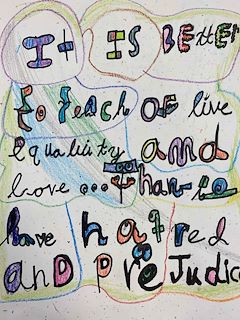 It IS BEttER
to teach OF live
equaliuity and
love ... than to
have hatred
AND PREJudic